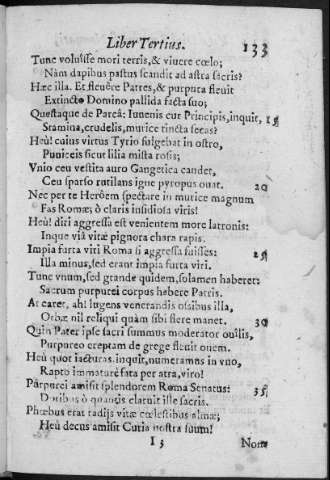 Liber Tertius. 133
Tunc voluisse mori terris, & viuere cœlo;
Nàm dapibus pastus scandit ad astra sacris?
Hæc illa. Et fleuêre Patres, & purpura fleuit
Extincto Domino pallida facta suo;
Questaque de Parcâ: Iuuenis cur Principis, inquit, 15
Stamina, crudelis, murice tincta secas?
Heù! cuius virtus Tyrio fulgebat in ostro,
Puniceis sicut lilia mista rosis;
Vnio ceu vestita auro Gangetica candet,
Ceu sparso rutilans igne pyropus ouat. 20
Nec per te Herôem spectare in murice magnum
Fas Romæ; ò claris insidiosa viris!
Heù! diri aggressa est venientem more latronis:
Inque viâ vitæ pignora chara rapis.
Impia furta viri Roma si aggressa fuisses: 25
Illa minus, sed erant impia furta viri.
Tunc vnum, sed grande quidem, solamen haberet:
Sacrum purpurei corpus habere Patris.
At caret, ah! lugens venerandis ossibus illa,
Orbæ nil reliqui quàm sibi flere manet. 30
Quin Pater ipse sacri summus moderator ouilis,
Purpureo ereptam de grege fleuit ouem.
Heù quot iacturas, inquit, numeramus in vno,
Rapto immaturè fata per atra, viro!
Purpurei amisit splendorem Roma Senatus: 35
Dotibus ò quantis claruit ille sacris.
Phœbus erat radijs vitæ cœlestibus almæ;
Heù decus amisit Curia nostra suum!
I 3 Non